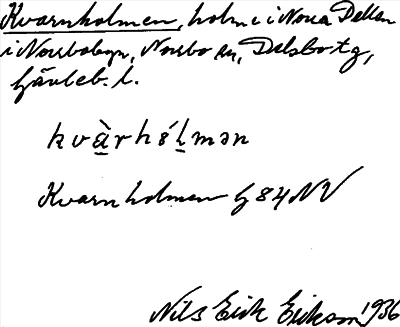 Kvarnholmen, holme i Norra Dellen
i Norrbobyn, Norrbo sn, Delsbo tg,
Gävleb. l.
kvàrhólmən
Kvarnholmen G 84 NV
Nils Erik Erikson 1936